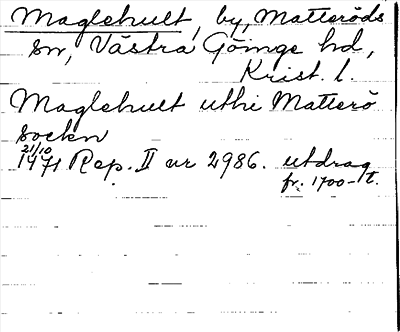 Maglehult, by, Matteröds
sn, Västra Göinge hd,
Krist. l.
Maglehult uthi Matterö
Sockn
21/10
1471 Rep. II nr 2986. utdrag
fr. 1700-t.